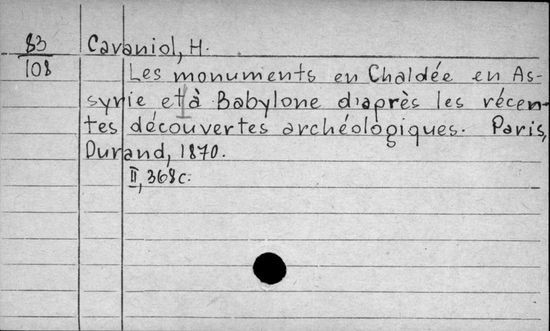 83 Cavaniol, H.
108 Les monuments en Chaldée en As-
syrie et à Babylone d'après les récen-
tes découvertes archéologiques. Paris,
Durand, 1870.
II, 368c.